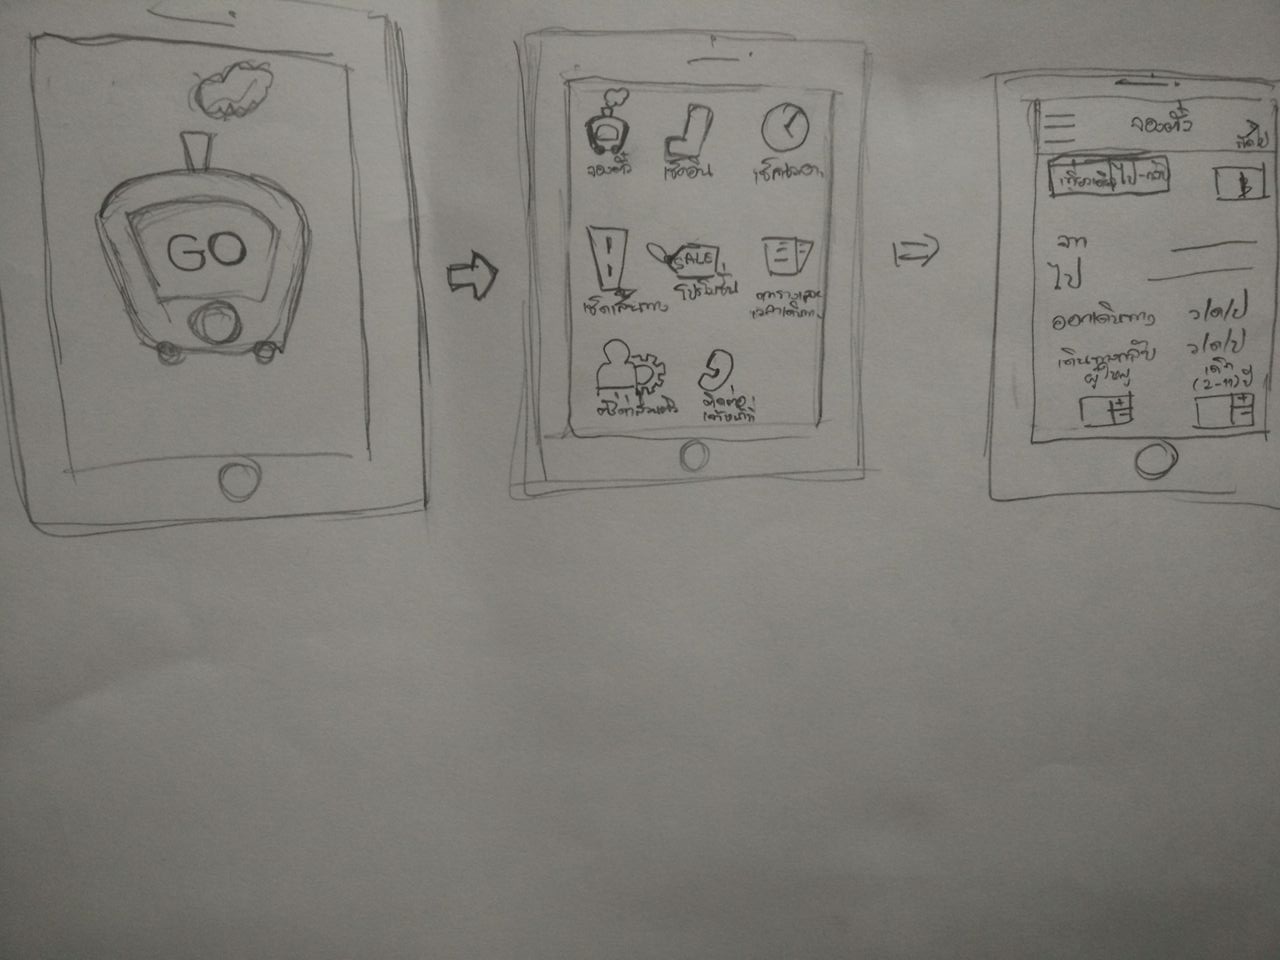 GO
จองตั๋ว
เช็คอิน
เช็คเวลา
เช็คเส้นทาง
SALE
โปรโมชั่น
ตารางและ
เวลาเดินทาง
ตั้งค่าส่วนตัว
ติดต่อ
เจ้าหน้าที่
จองตั๋ว
ถัดไป
เที่ยวเดียว ไป-กลับ
จาก
ไป
ออกเดินทาง ว/ด/ป
เดินทางกลับ ว/ด/ป
ผู้ใหญ่ เด็ก
(2-11) ปี
+ +
- -